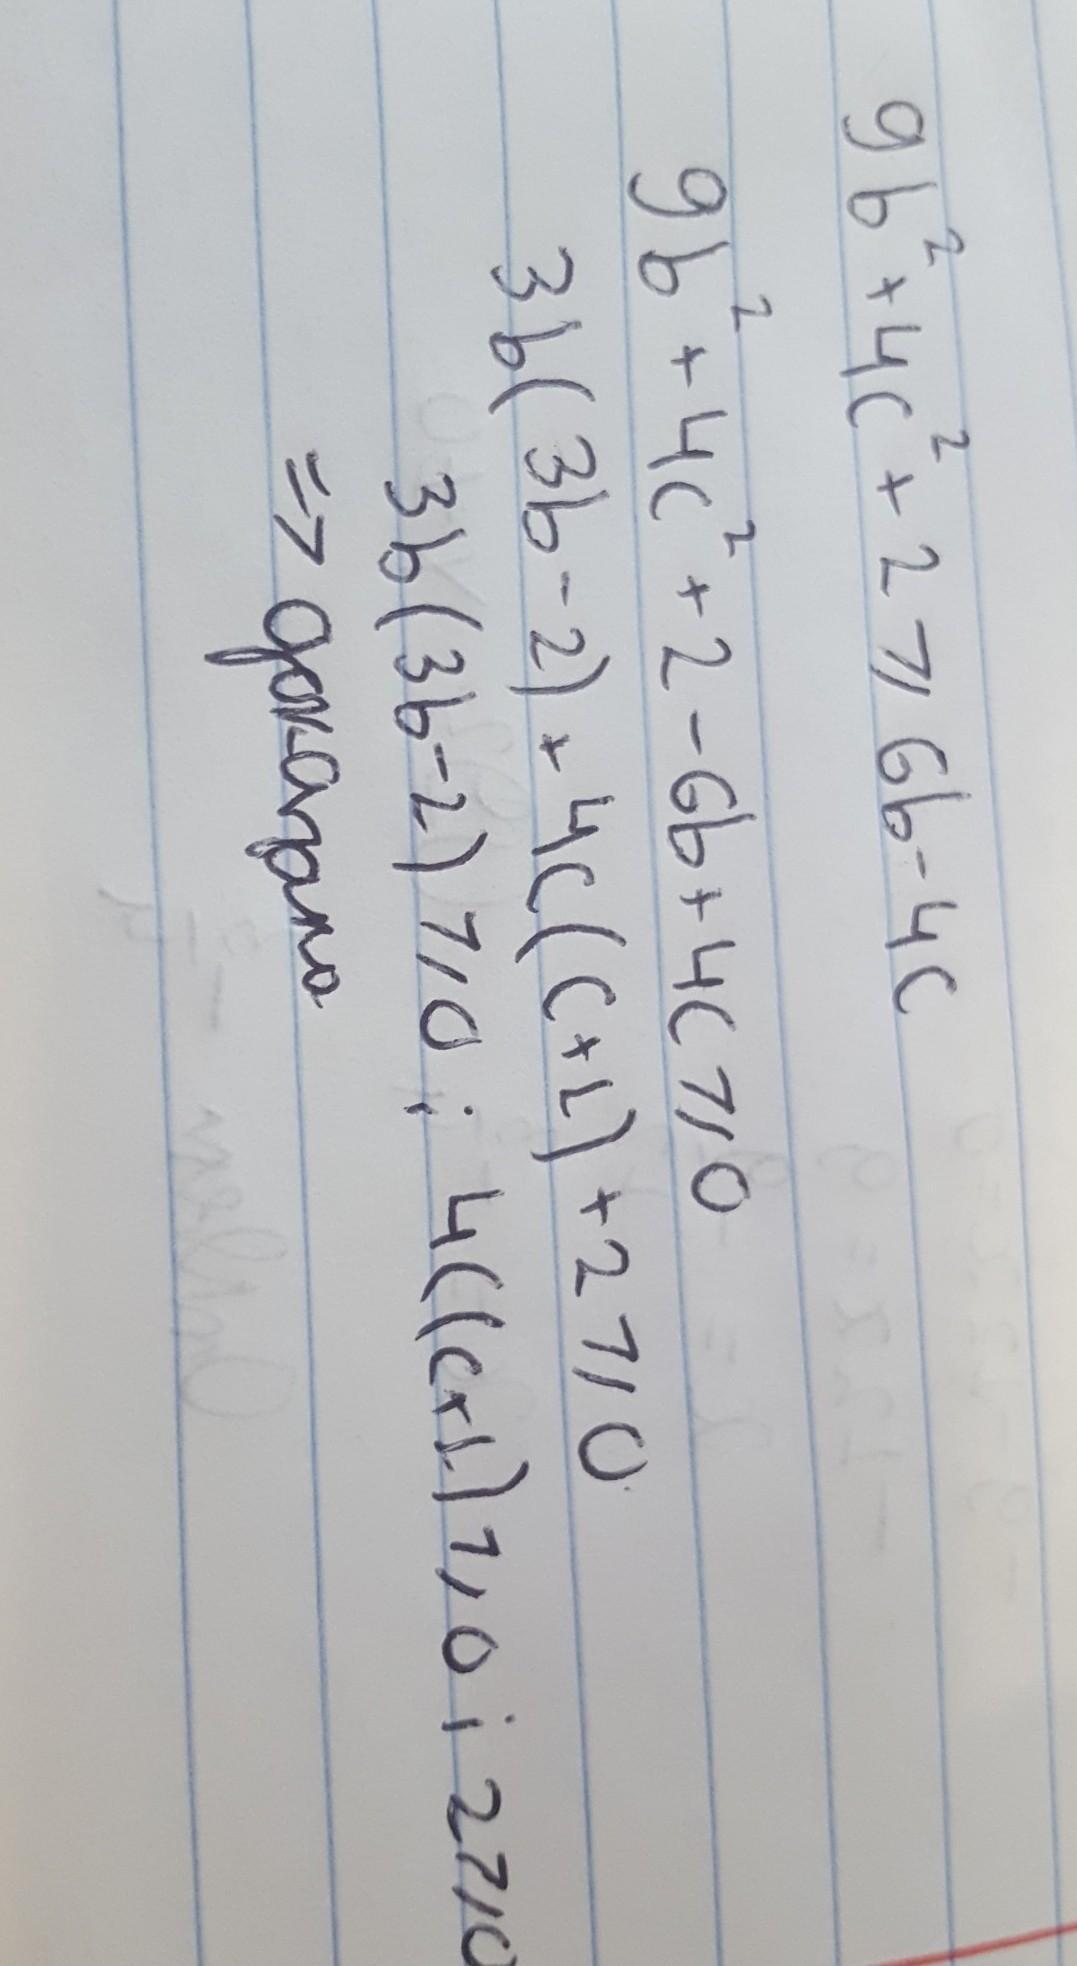 9b² + 4c² + 2 ⩾ 6b - 4c
9b² + 4c² + 2 - 6b + 4c ⩾ 0
3b(3b-2) + 4c(c+1) + 2 ⩾ 0
3b(3b-2) ⩾ 0 ; 4c(c+1) ⩾ 0 ; 2 ⩾ 0
=> доказано